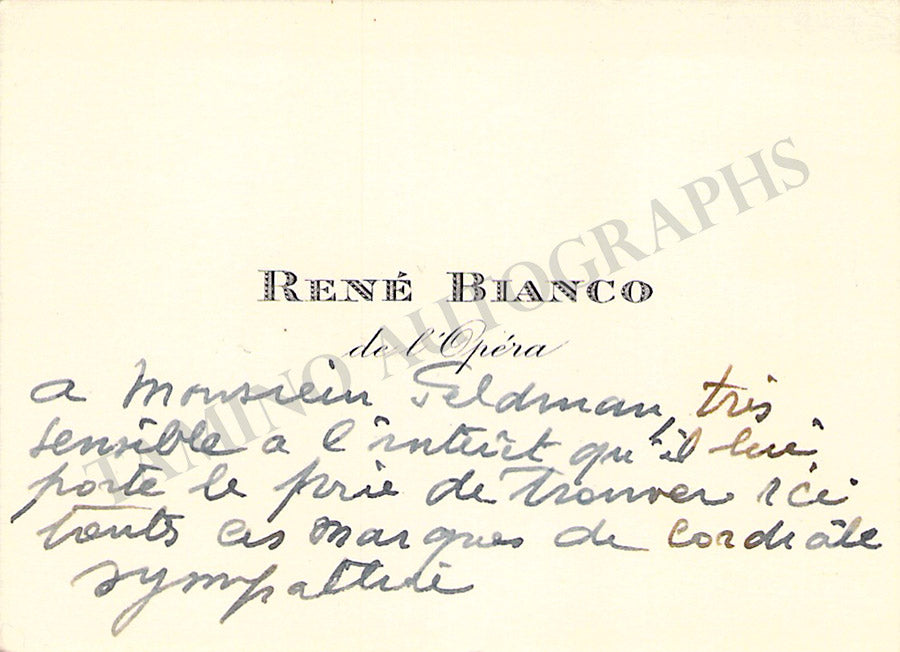 RENÉ BIANCO
de l'Opéra
a Monsieur Feldman, très
sensible a l'intérêt qu'il lui
porte le prie de trouver ici
touts ces marques de cordiâle
sympathie
TAMINO AUTOGRAPHS